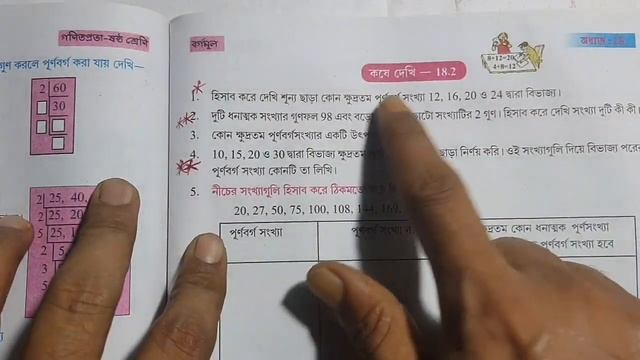 গণিতপ্রভা-ষষ্ঠ শ্রেণি
গুণ করলে পূর্ণবর্গ করা যায় দেখি—
2 60
30
2 25, 40,
2 25, 20
5 25, 1
2 5,
3 5
5
বর্গমূল
অধ্যায় : 18
8+12=20
4+8=12
কষে দেখি — 18.2
1. হিসাব করে দেখি শূন্য ছাড়া কোন ক্ষুদ্রতম সংখ্যা 12, 16, 20 ও 24 দ্বারা বিভাজ্য।
2. দুটি ধনাত্মক সংখ্যার গুণফল 98 এবং সংখ্যাটির 2 গুণ। হিসাব করে দেখি সংখ্যা দুটি কী কী
3. কোন ক্ষুদ্রতম পূর্ণবর্গসংখ্যার একটি
4. 10, 15, 20 ও 30 দ্বারা বিভাজ্য ক্ষুদ্রতম ছাড়া নির্ণয় করি। ওই সংখ্যাগুলি দিয়ে বিভাজ্য
সংখ্যা কোনটি তা লিখি।
5. নীচের সংখ্যাগুলি হিসাব করে
20, 27, 50, 75, 100, 108, 144, 169,
পূর্ণবর্গ সংখ্যা
পূর্ণবর্গ সংখ্যা
কোন ধনাত্মক পূর্ণসংখ্যা
পূর্ণবর্গ সংখ্যা হবে